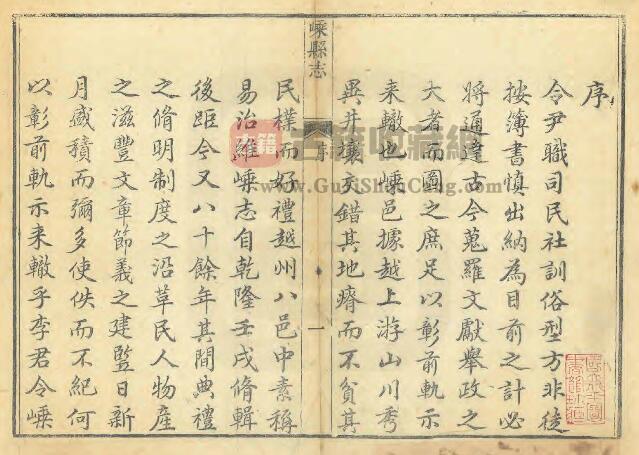 序
令尹職司民社訓俗型方非徒
按簿書慎出納為目前之計必
將通達古今蒐羅文獻舉政之
大者而圖之庶足以彰前軌示
来轍也嵊邑據越上游山川秀
異井壤交錯其地瘠而不貧其
嵊縣志
序
一
民樸而好禮越州八邑中素稱
易治維嵊志自乾隆壬戌脩輯
後距今又八十餘年其間典禮
之脩明制度之沿革民人物產
之滋豐文章節義之建竪日新
月盛積而彌多使佚而不紀何
以彰前軌示来轍乎李君令嵊
www.GujiShouCang.com